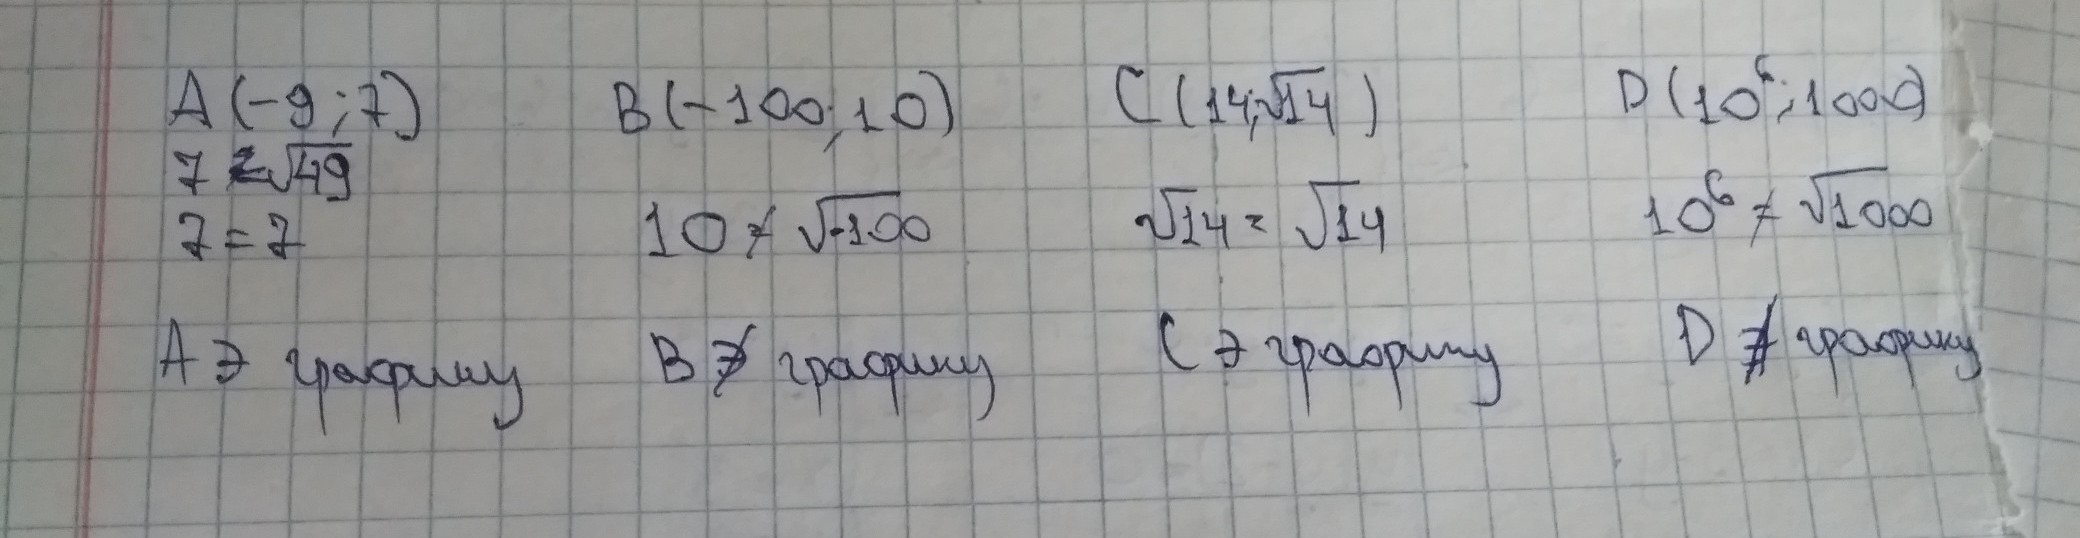 A (-9 ; 7) B (-100; 10) C (14; √14) D (10⁶; 1000)
7 = √49
7 = 7 10 ≠ √-100 √14 = √14 10⁶ ≠ √1000
A ∋ графику B ∌ графику C ∋ графику D ∌ графику